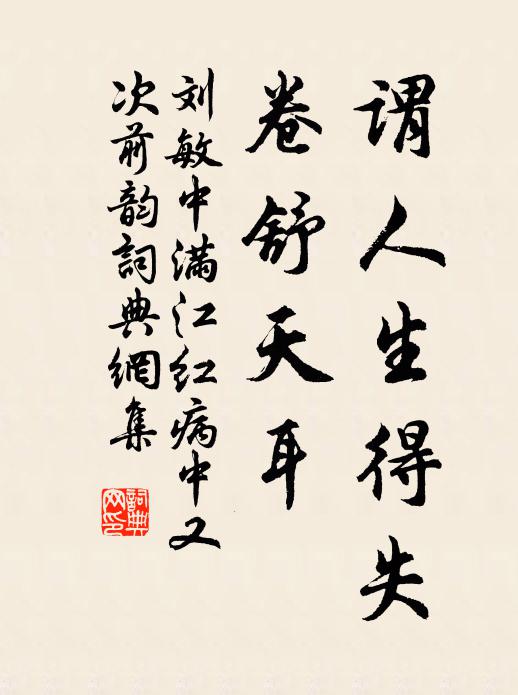 谓人生得失
卷舒天耳
刘敏中满江红病中又
次前韵詞典網集
詞典
网印